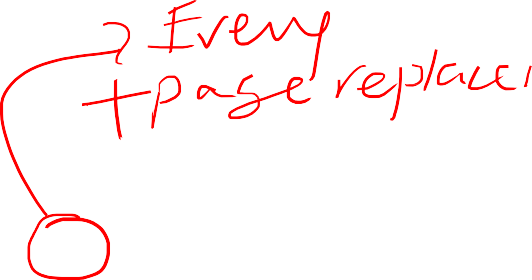 ? Every
+ page replace